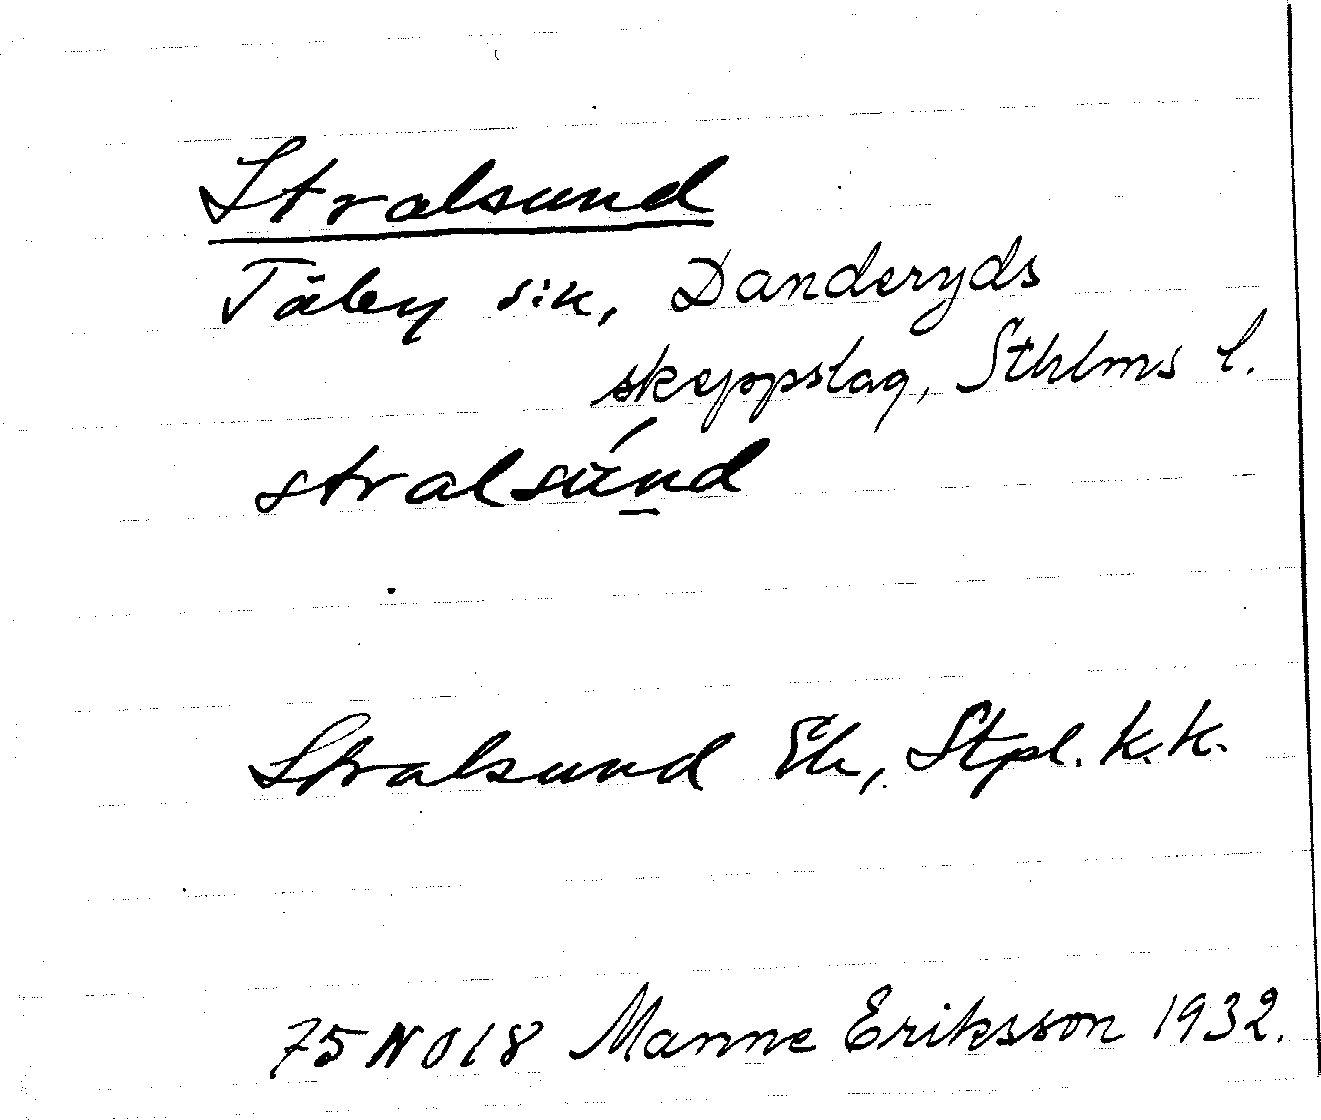 Stralsund
Täby s:n, Danderyds
skeppslag, Sthlms l.
stralsúnd
Stralsund Ek, Stpl. k.k.
75 NO 18 Manne Eriksson 1932.